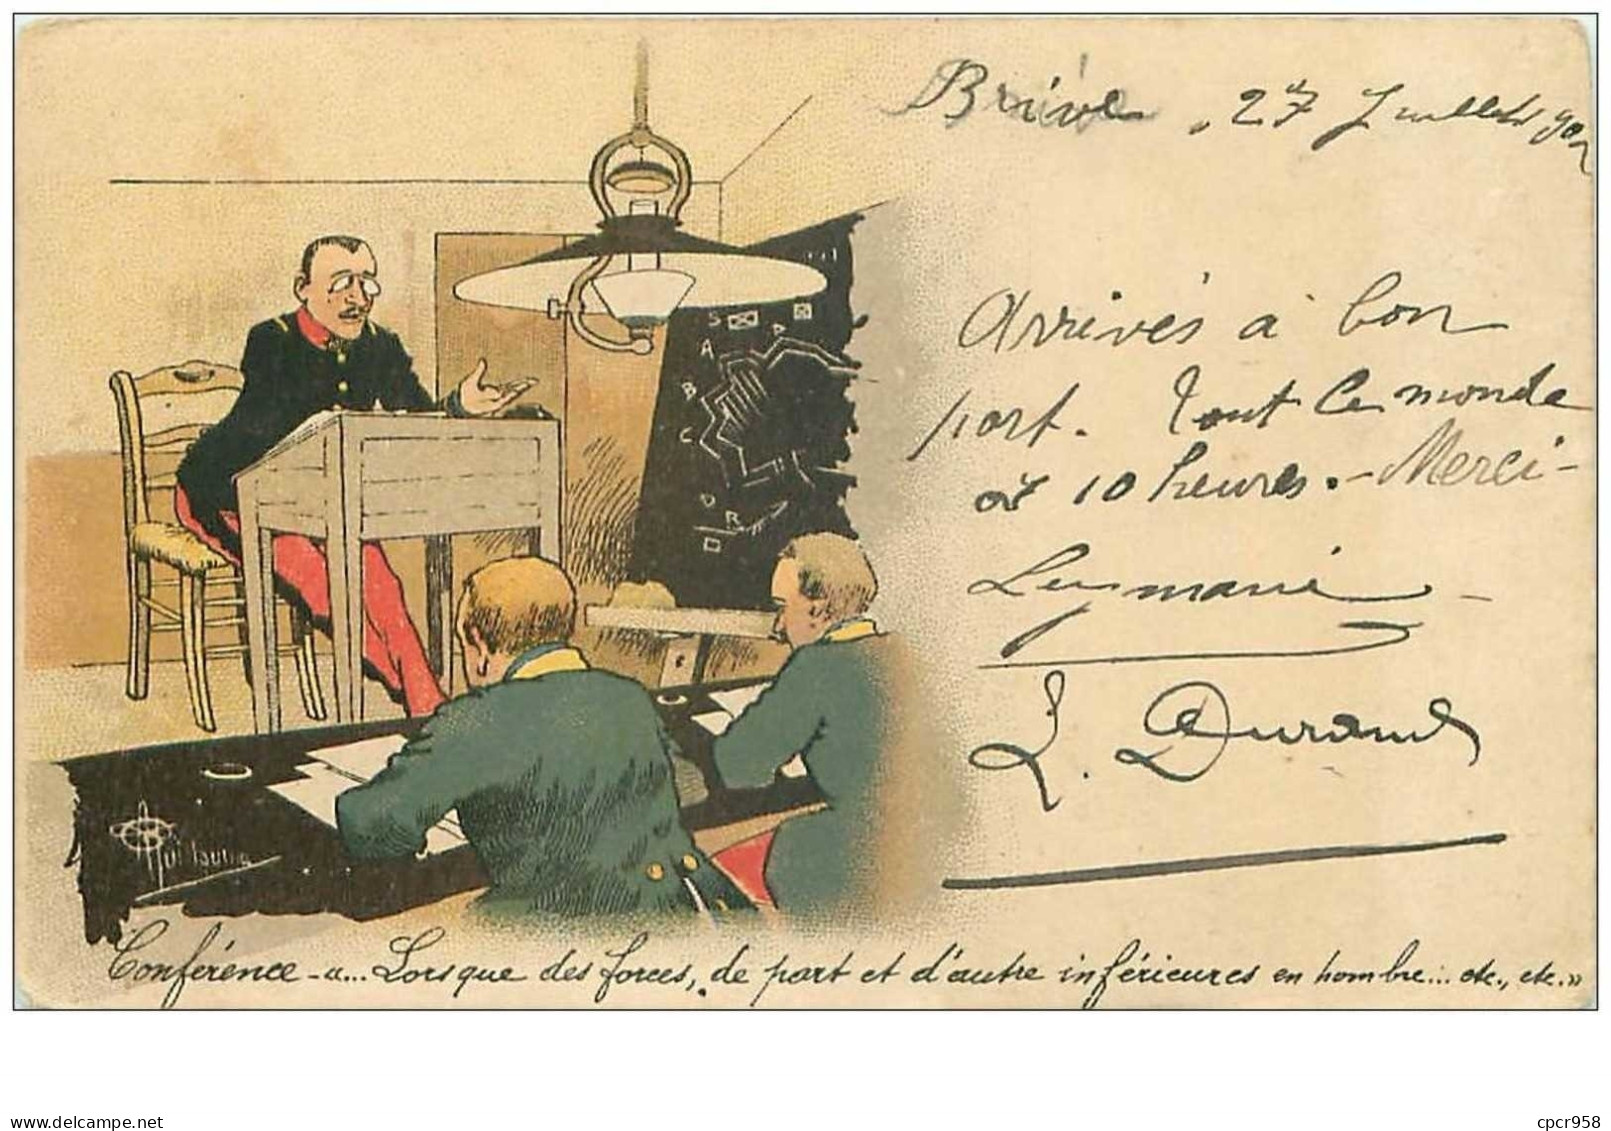 Brive, 27 Juillet 902
Arrivés à bon
port. Tout le monde
à 10 heures. - Merci -
Leymarie
L. Durand
S
A
D
B
C
D
R
A. Guillaume
Conférence - «... Lorsque des forces, de part et d'autre inférieures en nombre... etc., etc.»
cpcr958